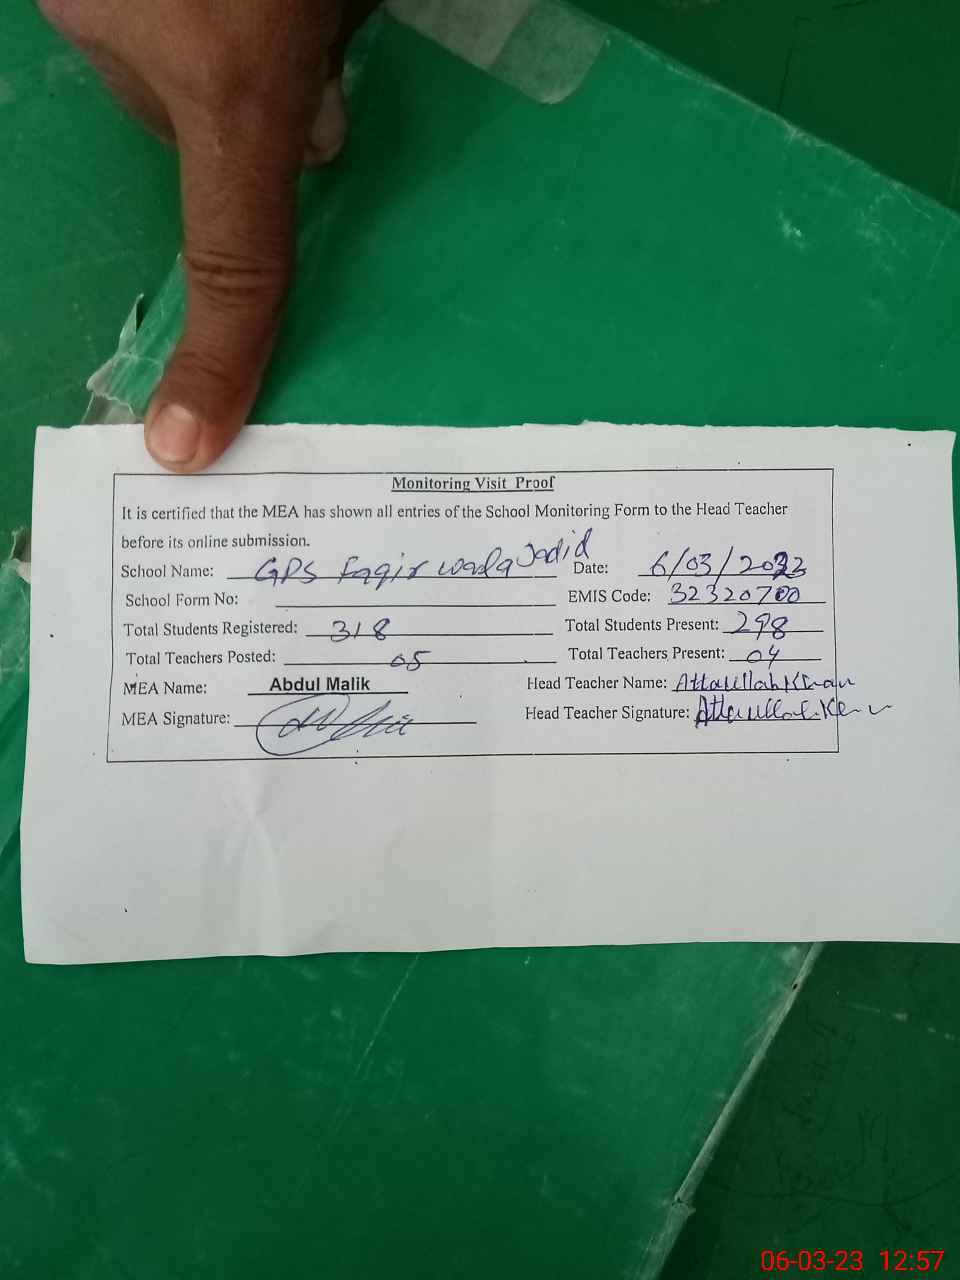 Monitoring Visit Proof
It is certified that the MEA has shown all entries of the School Monitoring Form to the Head Teacher
before its online submission.
School Name: GPS Faqir wala Jadid Date: 6/03/2023
School Form No: EMIS Code: 32320700
Total Students Registered: 318 Total Students Present: 298
Total Teachers Posted: 05 Total Teachers Present: 04
MEA Name: Abdul Malik Head Teacher Name: Attaullah Khan
MEA Signature: Head Teacher Signature: Attaullah Khan
06-03-23 12:57